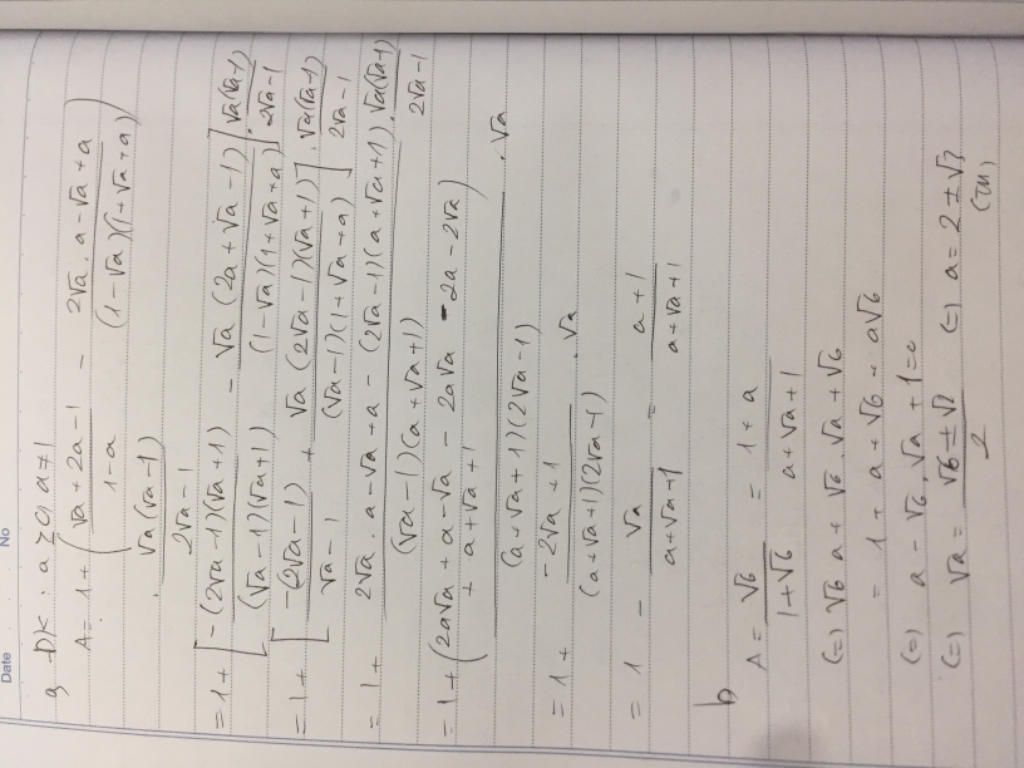 Date No
a ĐK : a ≥ 0, a ≠ 1
A = 1 + ( (√a + 2a - 1)/(1 - a) - (2√a . a - √a + a)/((1 - √a)(1 + √a + a)) )
. √a(√a - 1)/(2√a - 1)
= 1 + [ -(2√a - 1)(√a + 1)/((√a - 1)(√a + 1)) - √a(2a + √a - 1)/((1 - √a)(1 + √a + a)) ] . √a(√a - 1)/(2√a - 1)
= 1 + [ -(2√a - 1)/(√a - 1) + √a(2√a - 1)(√a + 1)/((√a - 1)(1 + √a + a)) ] . √a(√a - 1)/(2√a - 1)
= 1 + (2√a . a - √a + a - (2√a - 1)(a + √a + 1))/((√a - 1)(a + √a + 1)) . √a(√a - 1)/(2√a - 1)
= 1 + (2a√a + a - √a - 2a√a - 2a - 2√a
+ a + √a + 1)/((a + √a + 1)(2√a - 1)) . √a
= 1 + (-2√a + 1)/((a + √a + 1)(2√a - 1)) . √a
= 1 - √a/(a + √a + 1) = (a + 1)/(a + √a + 1)
b
A = √6/(1 + √6) = (1 + a)/(a + √a + 1)
(=) √6 a + √6 . √a + √6
= 1 + a + √6 + a√6
(=) a - √6 . √a + 1 = 0
(=) √a = (√6 ± √2)/2 (=) a = 2 ± √3
(TM)